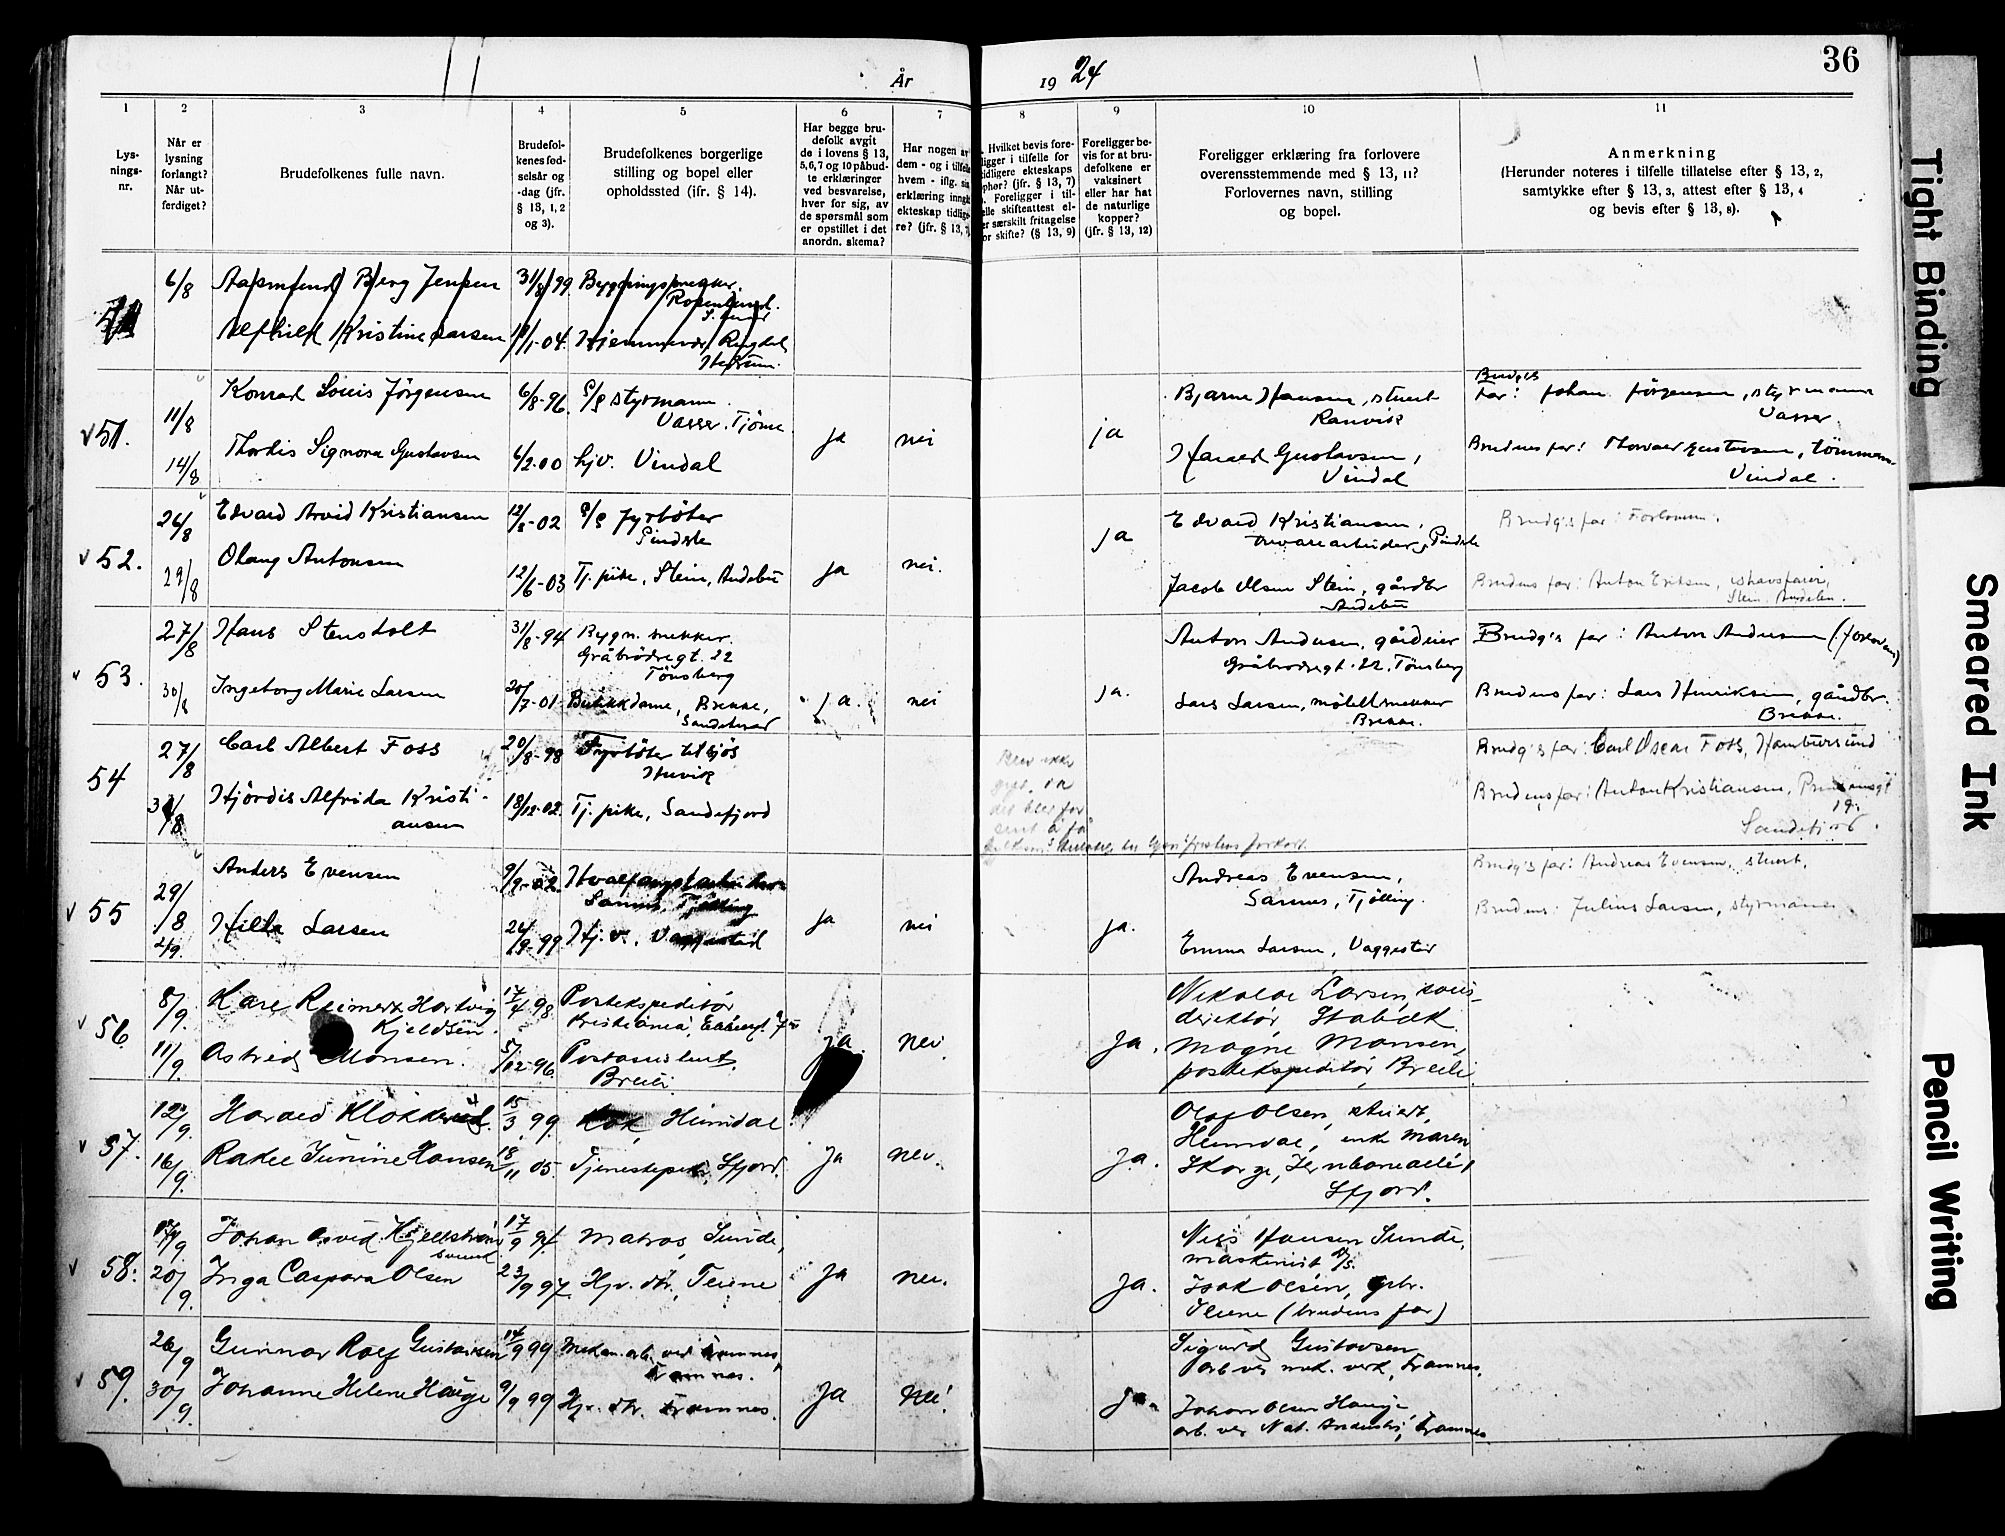 År 1924
36
1 2 3 4 5 6 7 8 9 10 11
Lys-
nings-
nr.
Når er
lysning
forlangt?
Når ut-
ferdiget?
Brudefolkenes fulle navn.
Brudefol-
kenes fød-
selsår og
-dag (jfr.
§ 13, 1, 2
og 3).
Brudefolkenes borgerlige
stilling og bopel eller
opholdssted (ifr. § 14).
Har begge bru-
defolk avgit
de i lovens § 13,
5,6,7 og 10 påbud-
te erklæringer
ved besvarelse,
hver for sig, av
de spørsmål som
er opstillet i det
anordn. skema?
Har nogen av
dem - og i tilfelle
hvem - iflg. sin
erklæring inngått
ekteskap tidlige-
re? (jfr. § 13, 7)
Hvilket bevis fore-
ligger i tilfelle for
tidligere ekteskaps
ophør? (jfr. § 13, 7)
Foreligger i til-
felle skifteattest el-
er særskilt fritagelse
for skifte? (§ 13, 9)
Foreligger be-
vis for at bru-
defolkene er
vaksinert
eller har hat
de naturlige
kopper?
(jfr. § 13, 12)
Foreligger erklæring fra forlovere
overensstemmende med § 13, 11?
Forlovernes navn, stilling
og bopel.
Anmerkning
(Herunder noteres i tilfelle tillatelse efter § 13, 2,
samtykke efter § 13, 3, attest efter § 13, 4
og bevis efter § 13, 8).
6/8 Berg Jensen 31/8 99 Bygningssnekker
Kristine Larsen 19/1-04.
51. 11/8 Konrad Louis Jörgensen 6/8-96. S/S styrmann
Vasser, Tjöme
14/8 Thordis Signora Gustavsen 6/2-00 hjv. Vindal
ja nei ja
Bjarne Hansen, stuert
Ranvik
Harald Gustavsen,
Vindal
Brudg's
Far: Johan Jörgensen, styrmann
Vasser
Brudens far: Gustavsen, tömmerm.
Vindal.
52. 26/8 Edvard Arvid Kristiansen 12/2-02 S/S fyrböter
29/8 Olaug Antonsen 12/6-03 Tj. pike, Stein, Andebu
ja nei. ja
Edvard Kristiansen,
Jacob Olsen Stein, gårdbr
Andebu
Brudg's far: Forloveren.
Brudens far: Anton Eriksen, ishavsfarer,
Stein, Andebu.
53. 27/8 Hans Stensholt 31/8-94 Bygn. snekker.
Gråbrödregt. 22
Tönsberg
30/8 Ingeborg Marie Larsen 20/7-01 Butikkdame, Brekke,
Sandeherad
ja. nei ja.
Anton Andersen, gårdeier
Gråbrödregt. 22, Tönsberg
Lars Larsen, möbelsnekker
Brekke.
Brudg's far: Anton Andersen (forlover)
Brudens far: Lars Henriksen, gårdbr.
Brekke.
54 27/8 Carl Albert Foss 20/8-98 Fyrböter tilsjös
Huvik
Hjördis Alfrida Kristi-
ansen
18/12-02. Tj. pike, Sandefjord
Blev ikke
Brudg's far: Carl Oscar Foss, Hamburgsund
Brudens far: Anton Kristiansen, Prinsensgt
19.
Sandefjord.
55 29/8 Anders Evensen 9/9-02. Hvalfangstarbeider
Sannes, Tjölling
2/9. Hilda Larsen 24/9-99 Hj. v., Vaggestad
ja nei ja.
Andreas Evensen,
Sannes, Tjölling.
Emma Larsen, Vaggestad
Brudg's far: Andreas Evensen, stuert.
Brudens: Julius Larsen, styrmann
56. 8/9. Kåre Reimers Hartvig
Kjeldsen.
17/4 98 Postekspeditör
Kristiania,
11/9. Astrid Monsen. 5/12-96. Postassistent,
Breili
ja. nei. ja.
Nikolai Larsen, kons-
direktör, Stabæk
Magne Monsen,
postekspeditör, Breili.
57. 12/9. Harald Klokkerud. 15/3 99. Kok, Heimdal
16/9. Rakel Junine Hansen 18/11 05. Tjenestepike, Sfjord.
ja nei. ja.
Olaf Olsen, stuert,
Heimdal, enke Maren
Skorge, Jernbanealle 1
Sfjord.
58. 17/9 Johan Arvid Kjellström
svensk
17/9 94 Matros, Sunde,
20/9. Inga Caspara Olsen 23/9 97. Hjv. dtr., Teiene
ja nei. ja.
Nils Hansen Sunde,
maskinist D/S.
Isak Olsen, gbr.
Teiene (brudens far)
59. 26/9 Gunnar Rolf Gustavsen 14/9 99 Mekan. arb. ved Framnes,
Framnes.
30/9. Johanne Helene Hauge 9/9 99 Hjv. dtr. Framnes.
ja nei. ja.
Sigurd Gustavsen
arb ved mek. verk, Framnes.
Johan Olsen Hauge,
arb. ved Nat. Industri, Framnes.
Tight Binding
Smeared Ink
Pencil Writing